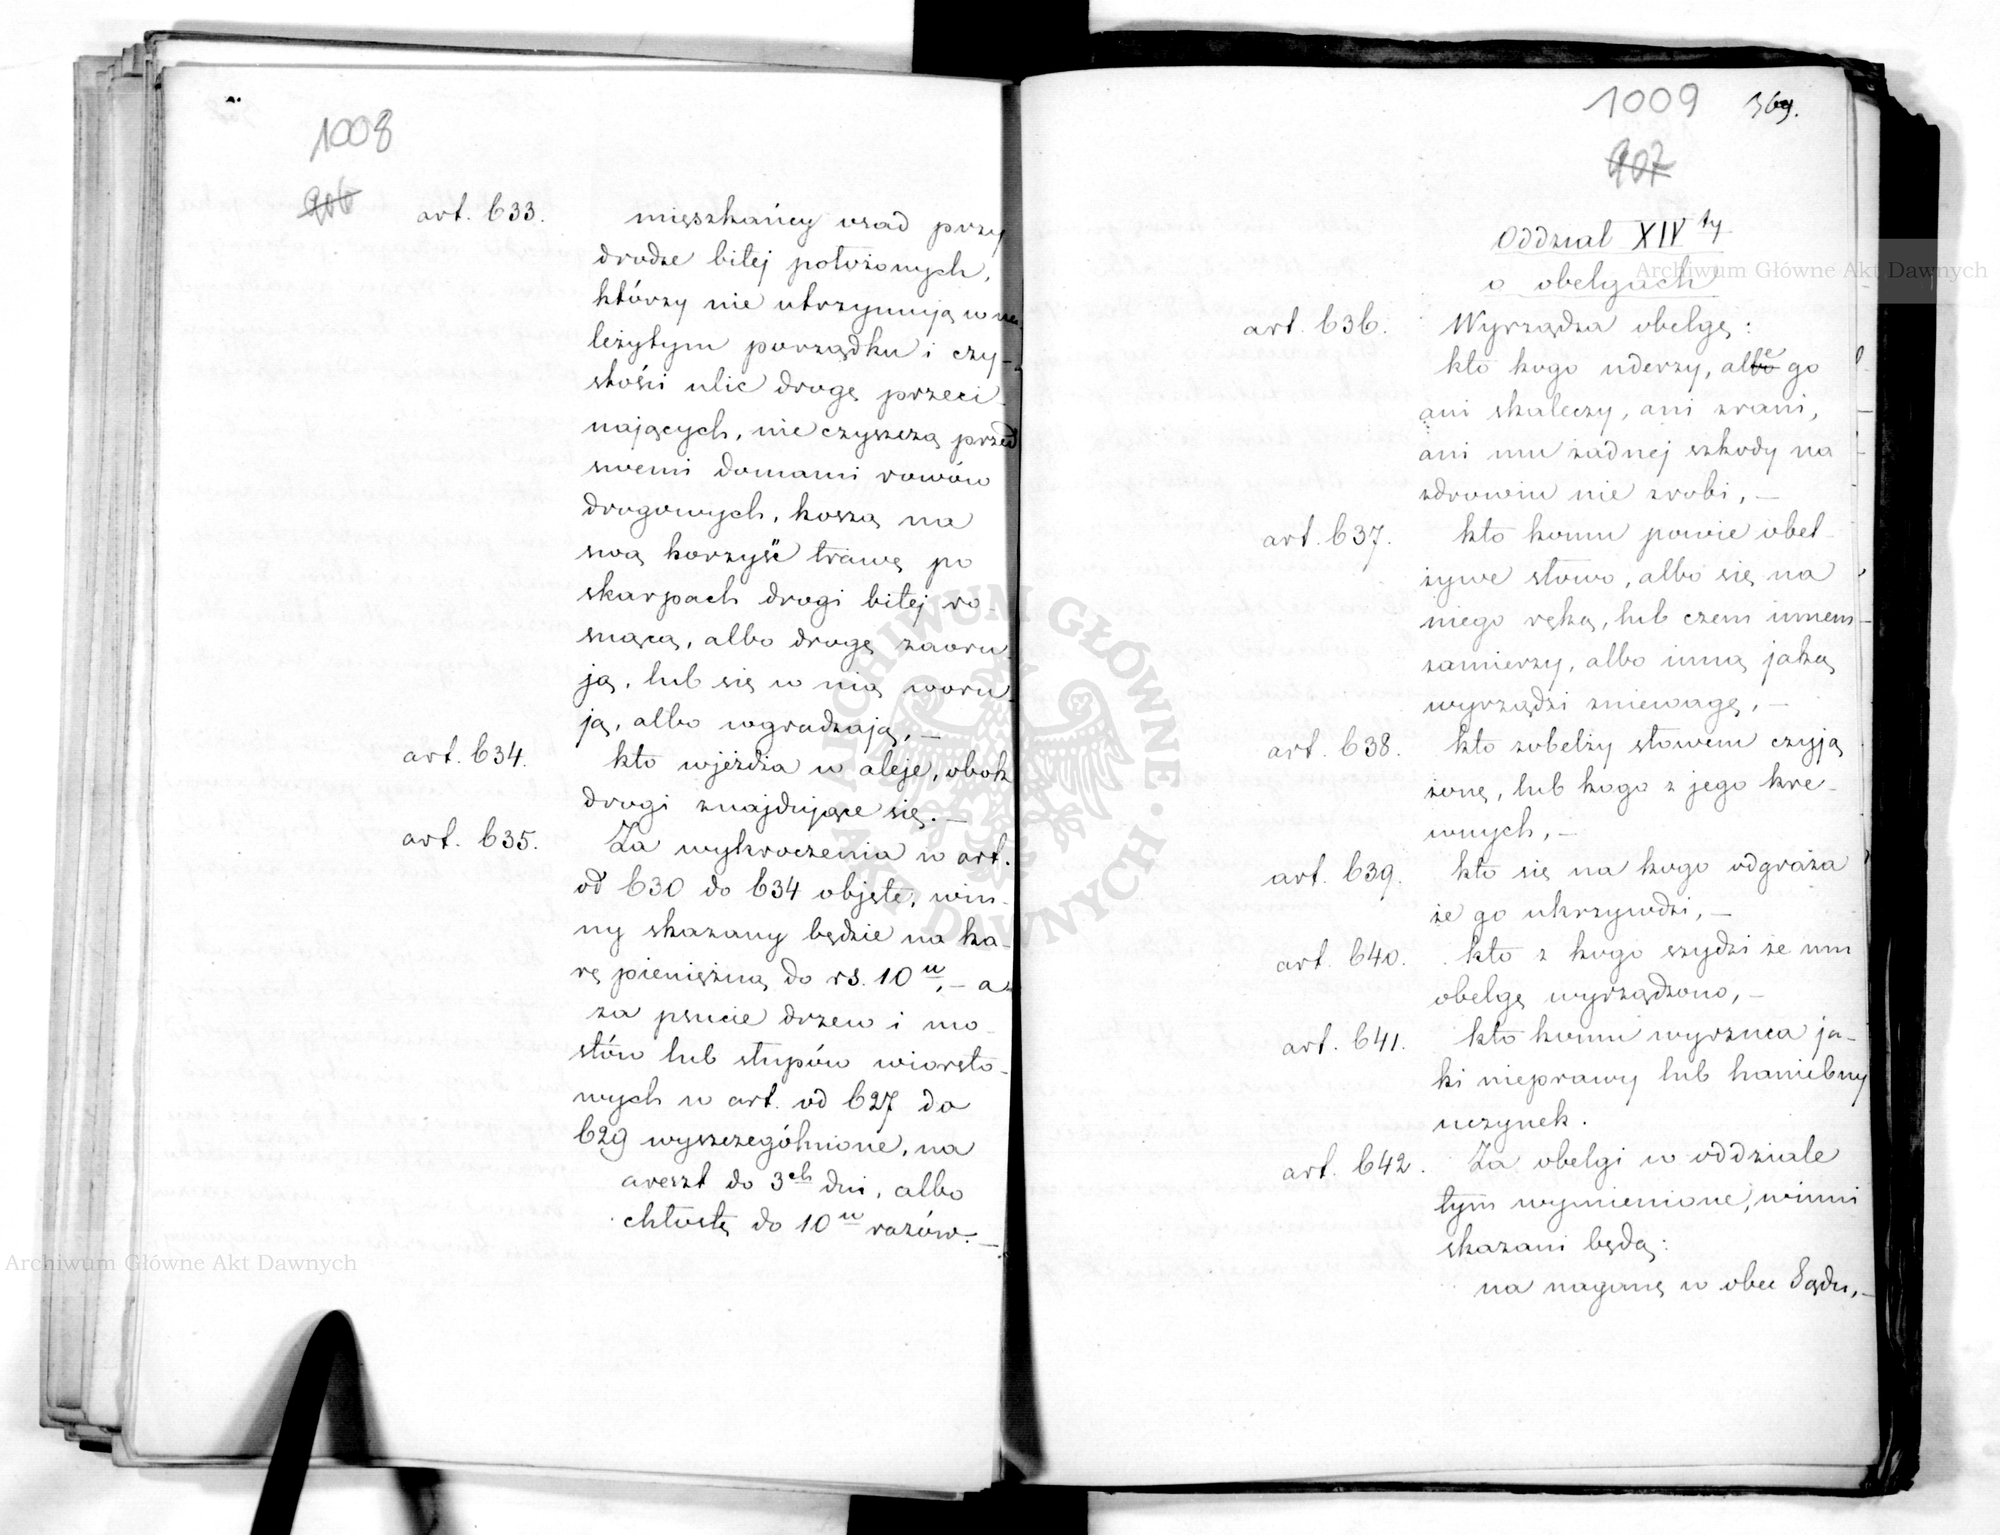 1008
906
art. 633.
mięszkańcy osad przy
drodze bitej położonych,
którzy nie utrzymują w na
leżytym porządku i czy-
stości ulic drogę przeci-
nających, nie czyszczą przed
swemi domami rowów
drogowych, koszą na
swą korzyść trawę po
skarpach drogi bitej ro-
snącą, albo drogę zaoru-
ją, lub się w nią woru-
ją, albo wgradzają, —
art. 634.
kto wjeżdża w aleje, obok
drogi znajdujące się. —
art. 635.
Za wykroczenia w art.
od 630 do 634 objęte, win-
ny skazany będzie na ka-
rę pieniężną do rs. 10 u, — a
za psucie drzew i mo-
stów lub słupów wiorsto-
wych w art. od 627 do
629 wyszczególnione, na
areszt do 3ch dni, albo
chłostę do 10u razów. —
1009 369.
907
Oddział XIV ty
o obelgach
art. 636.
Wyrządza obelgę:
kto kogo uderzy, albo go
ani skaleczy, ani zrani,
ani mu żadnej szkody na
zdrowiu nie zrobi, —
art. 637.
kto komu powie obel-
żywe słowo, albo się na
niego ręką, lub czem innem
zamierzy, albo inną jaką
wyrządzi zniewagę, —
art. 638.
kto zobelży słowem czyją
żonę, lub kogo z jego kre-
wnych, —
art. 639.
kto się na kogo odgraża
że go ukrzywdzi, —
art. 640.
kto z kogo szydzi że mu
obelgę wyrządzono, —
art. 641.
kto komu wyrzuca ja-
ki nieprawy lub haniebny
uczynek.
art. 642.
Za obelgi w oddziale
tym wymienione, winni
skazani będą:
na naganę w obec Sądu, —
Archiwum Główne Akt Dawnych
Archiwum Główne Akt Dawnych
ARCHIWUM GŁÓWNE AKT DAWNYCH